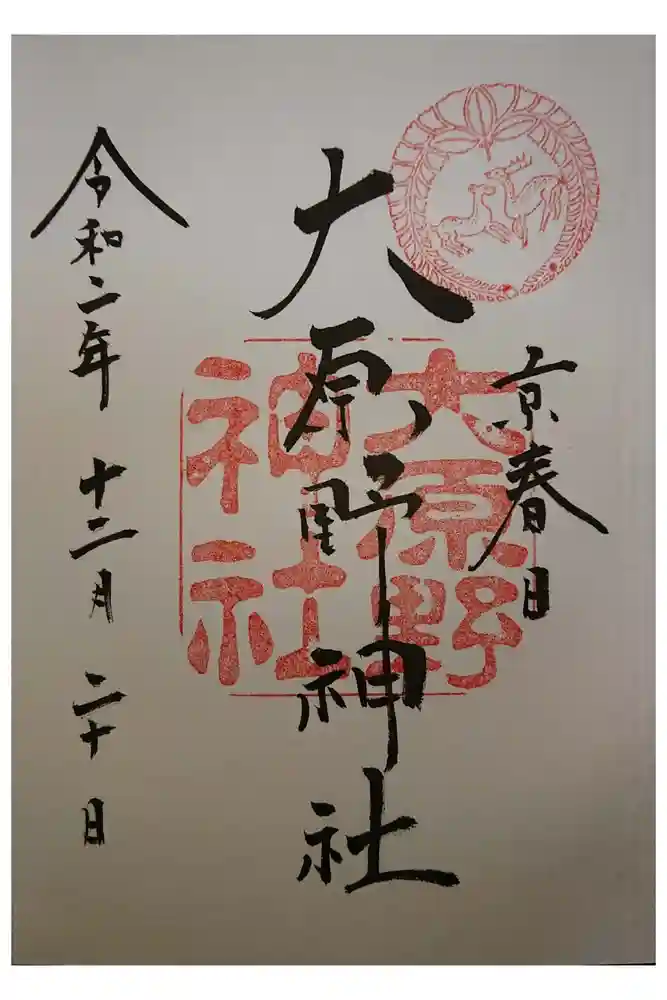 京春日
大原野神社
大原野
神社
令和二年 十二月 二十日